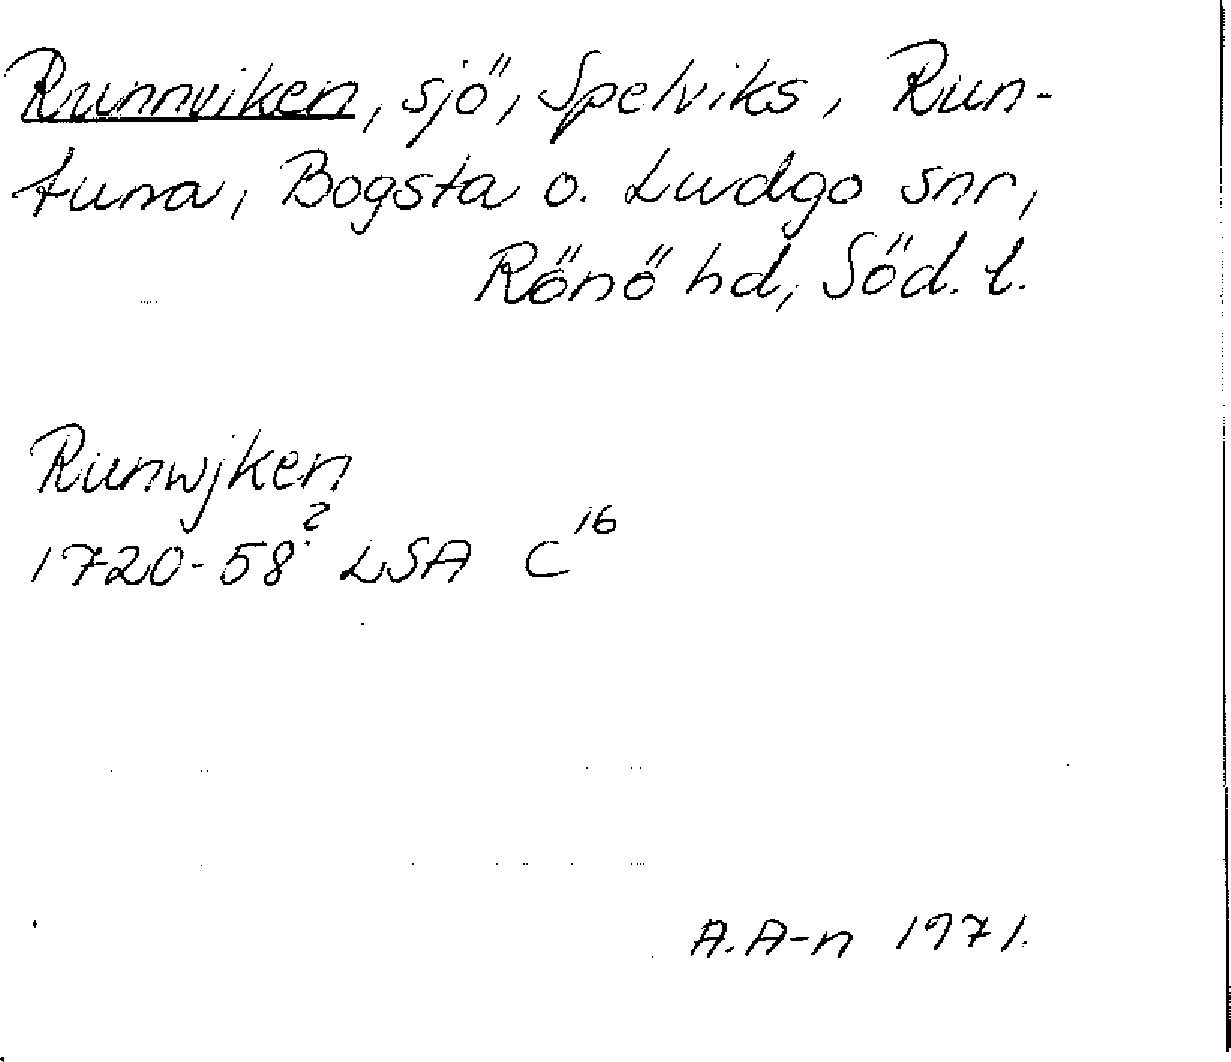 Runnviken, sjö, Spelviks, Run-
tuna, Bogsta o. Ludgo snr,
Rönö hd, Söd. l.
Runwjken
1720-58? LSA C16
A.A-n 1971.